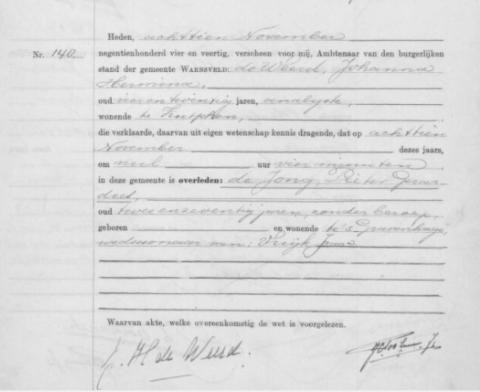 Heden, achttien November
Nr. 140 negentienhonderd vier en veertig, verscheen voor mij, Ambtenaar van den burgerlijken
stand der gemeente WARNSVELD: de Weerd, Johanna
Hermina,
oud vierentwintig jaren, analyste,
wonende te Zutphen,
die verklaarde, daarvan uit eigen wetenschap kennis dragende, dat op achttien
November dezes jaars,
om nul uur vier minuten
in deze gemeente is overleden: de Jong, Pieter
oud twee en zeventig jaren, zonder beroep,
geboren en wonende te 's Gravenhage,
weduwnaar van:
Waarvan akte, welke overeenkomstig de wet is voorgelezen.
J. H de Weerd.